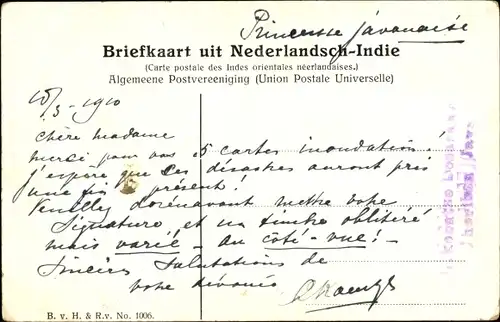 Princesse javanaise
Briefkaart uit Nederlandsch-Indie
(Carte postale des Indes orientales néerlandaises.)
Algemeene Postvereeniging (Union Postale Universelle)
10/3-1910
chère Madame
merci pour vos 5 cartes inondation!
J'espère que ces désastres auront pris
une fin à présent!
Veuillez dorénavant mettre votre
signature et un timbre oblitéré
mais varié - au côté-vue!-
Sincères salutations de
votre dévouée
B. v. H. & R.v. No. 1006.